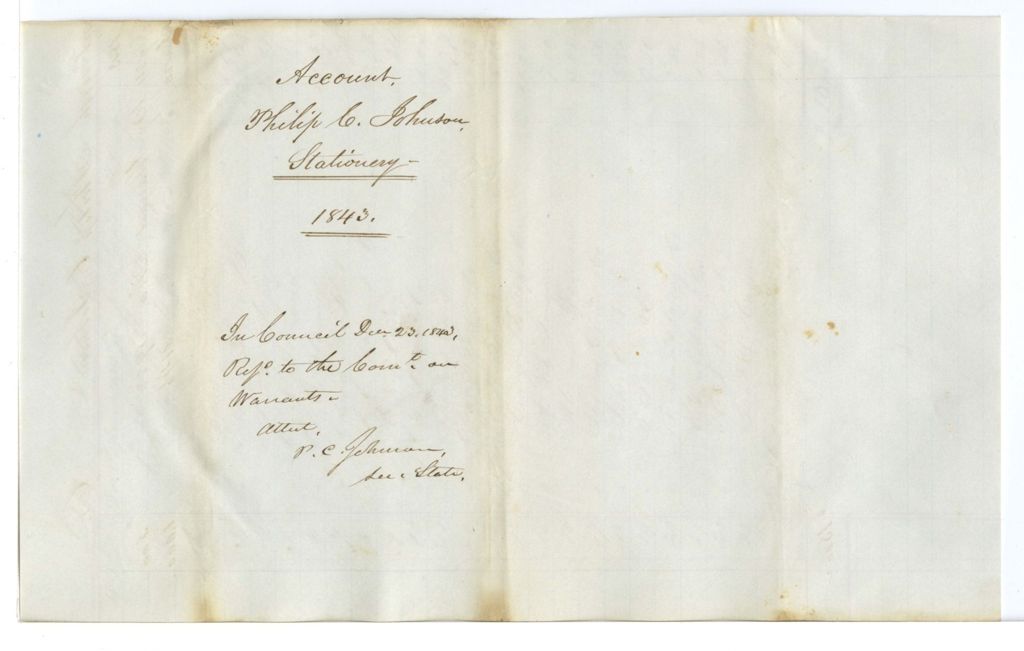 Account.
Philip C. Johnson,
Stationery-
1843.
In Council Dec. 23. 1843,
Refd. to the Comte. on
Warrants-
Attest,
P. C. Johnson,
Sec. State.